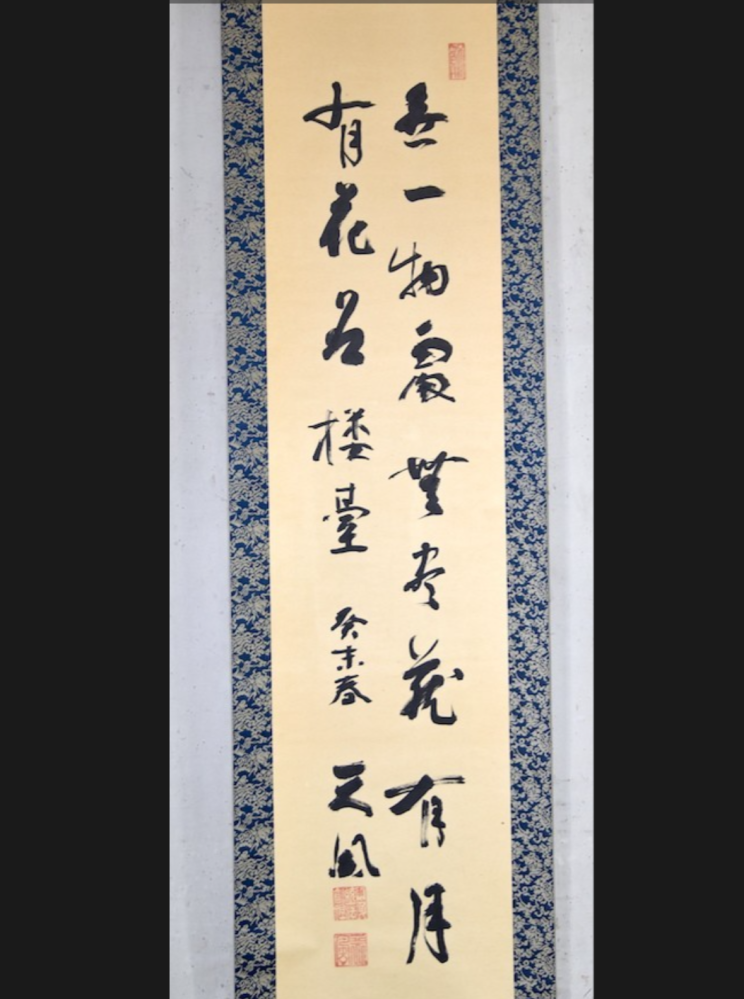 無一物處無尽蔵有月
有花楼臺 癸未春 天風